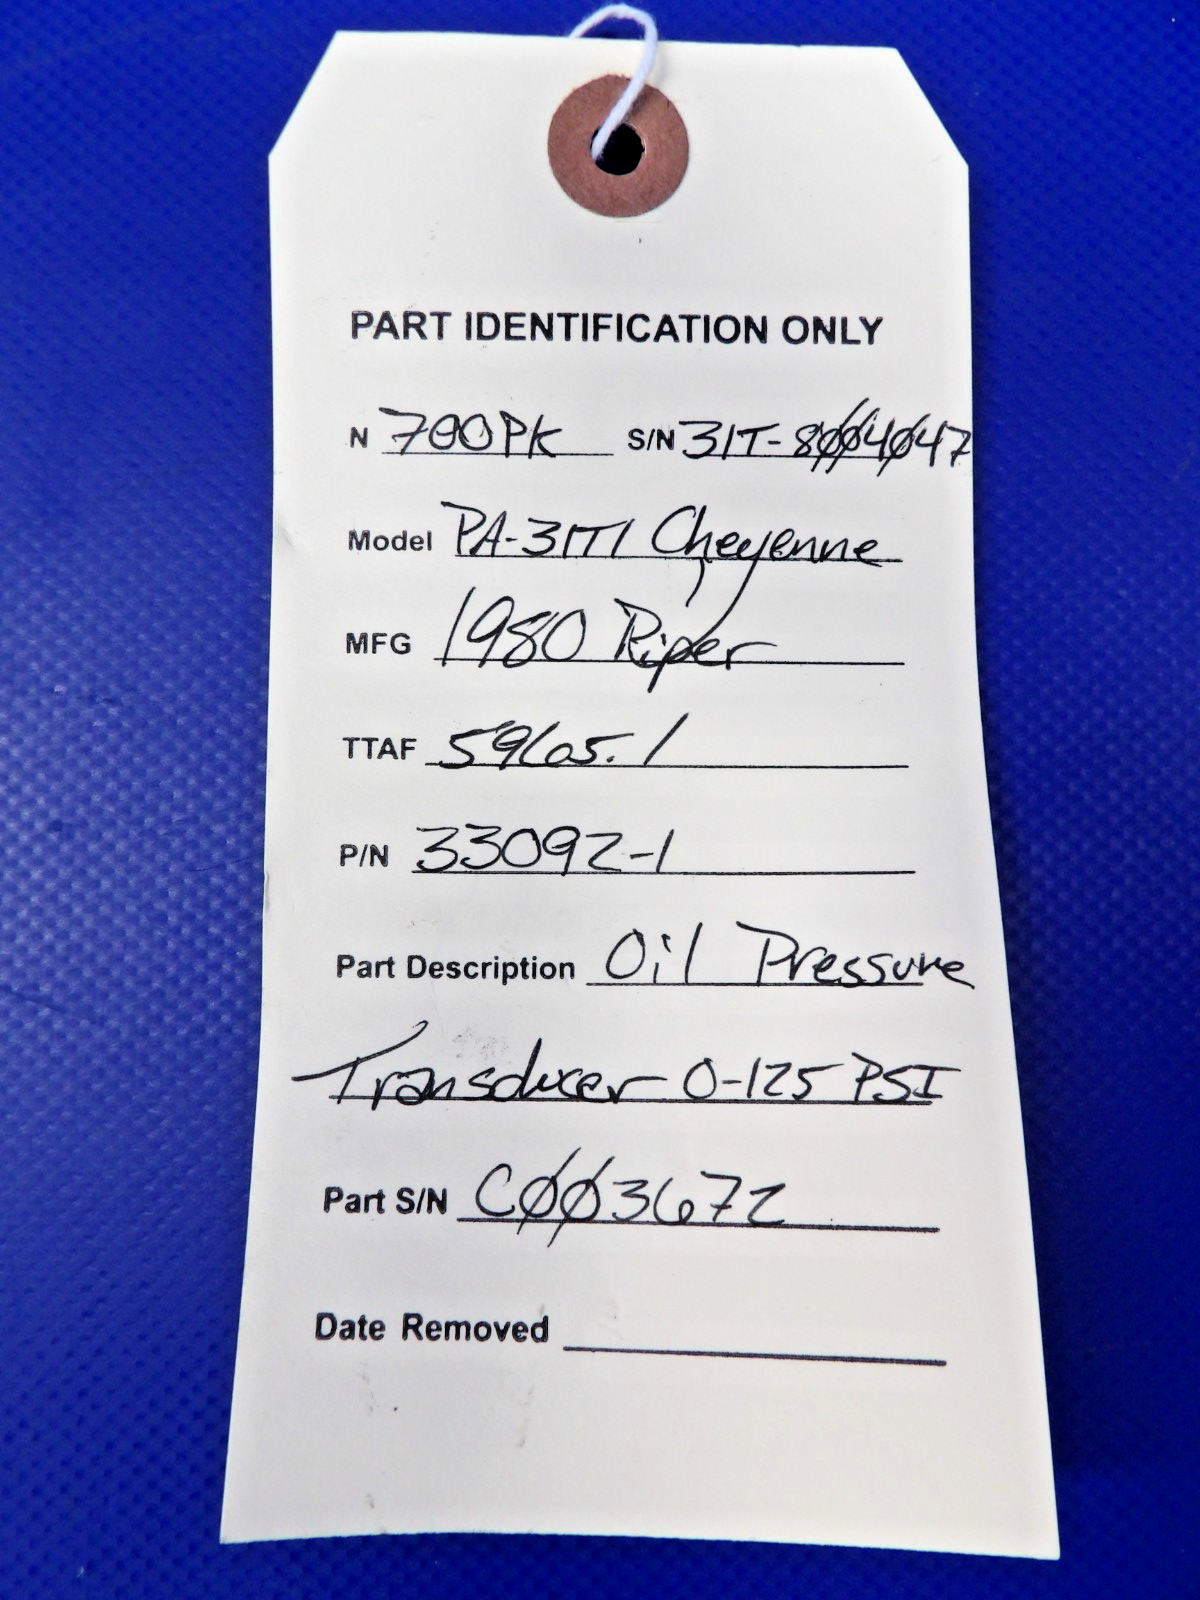 PART IDENTIFICATION ONLY
N 700PK S/N 31T-8004047
Model PA-31T1 Cheyenne
MFG 1980 Piper
TTAF 5965.1
P/N 33092-1
Part Description Oil Pressure
Transducer 0-125 PSI
Part S/N C003672
Date Removed